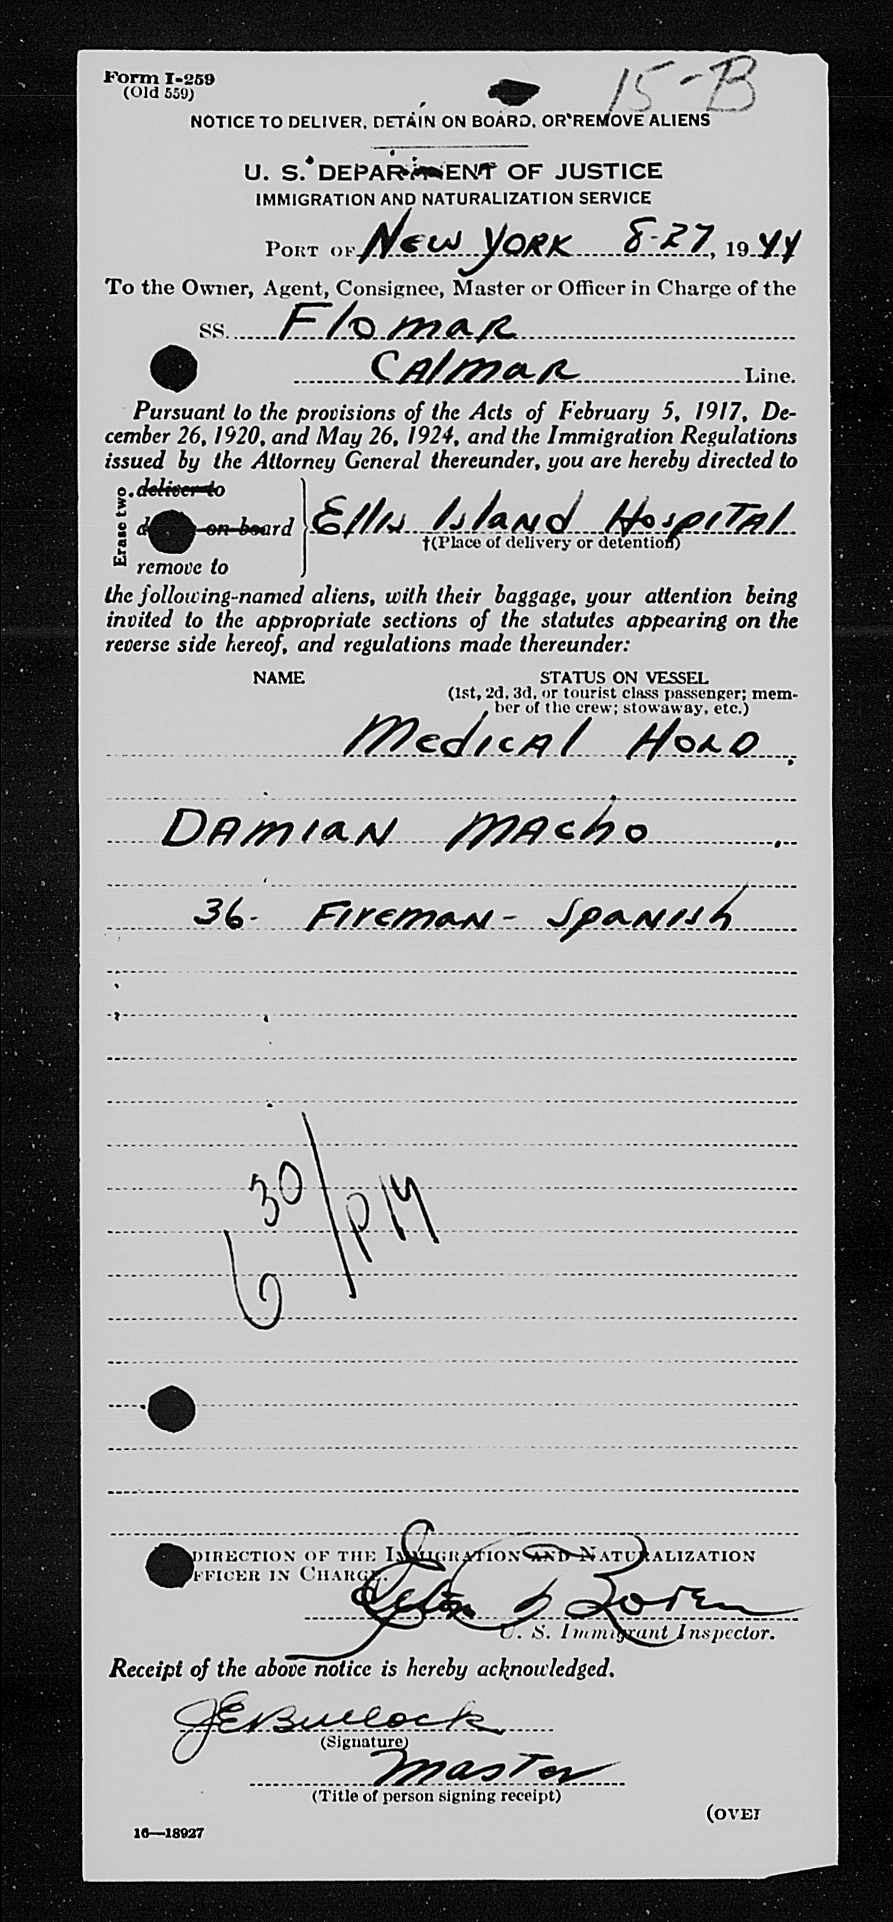 Form I-259
(Old 559)
15-B
NOTICE TO DELIVER, DETAIN ON BOARD, OR REMOVE ALIENS
U. S. DEPARTMENT OF JUSTICE
IMMIGRATION AND NATURALIZATION SERVICE
PORT OF New York 8-27, 1944
To the Owner, Agent, Consignee, Master or Officer in Charge of the
SS. Flomar
Calmar Line.
Pursuant to the provisions of the Acts of February 5, 1917, De-
cember 26, 1920, and May 26, 1924, and the Immigration Regulations
issued by the Attorney General thereunder, you are hereby directed to
Erase two
deliver to
on board
Ellis Island Hospital
†(Place of delivery or detention)
remove to
the following-named aliens, with their baggage, your attention being
invited to the appropriate sections of the statutes appearing on the
reverse side hereof, and regulations made thereunder:
NAME STATUS ON VESSEL
(1st, 2d, 3d, or tourist class passenger; mem-
ber of the crew; stowaway, etc.)
Medical Hold
Damian Macho
36- Fireman - Spanish
6 30/PM
DIRECTION OF THE IMMIGRATION AND NATURALIZATION
OFFICER IN CHARGE.
U. S. Immigrant Inspector.
Receipt of the above notice is hereby acknowledged.
JE Bullock
(Signature)
Master
(Title of person signing receipt)
(OVER
16—18927